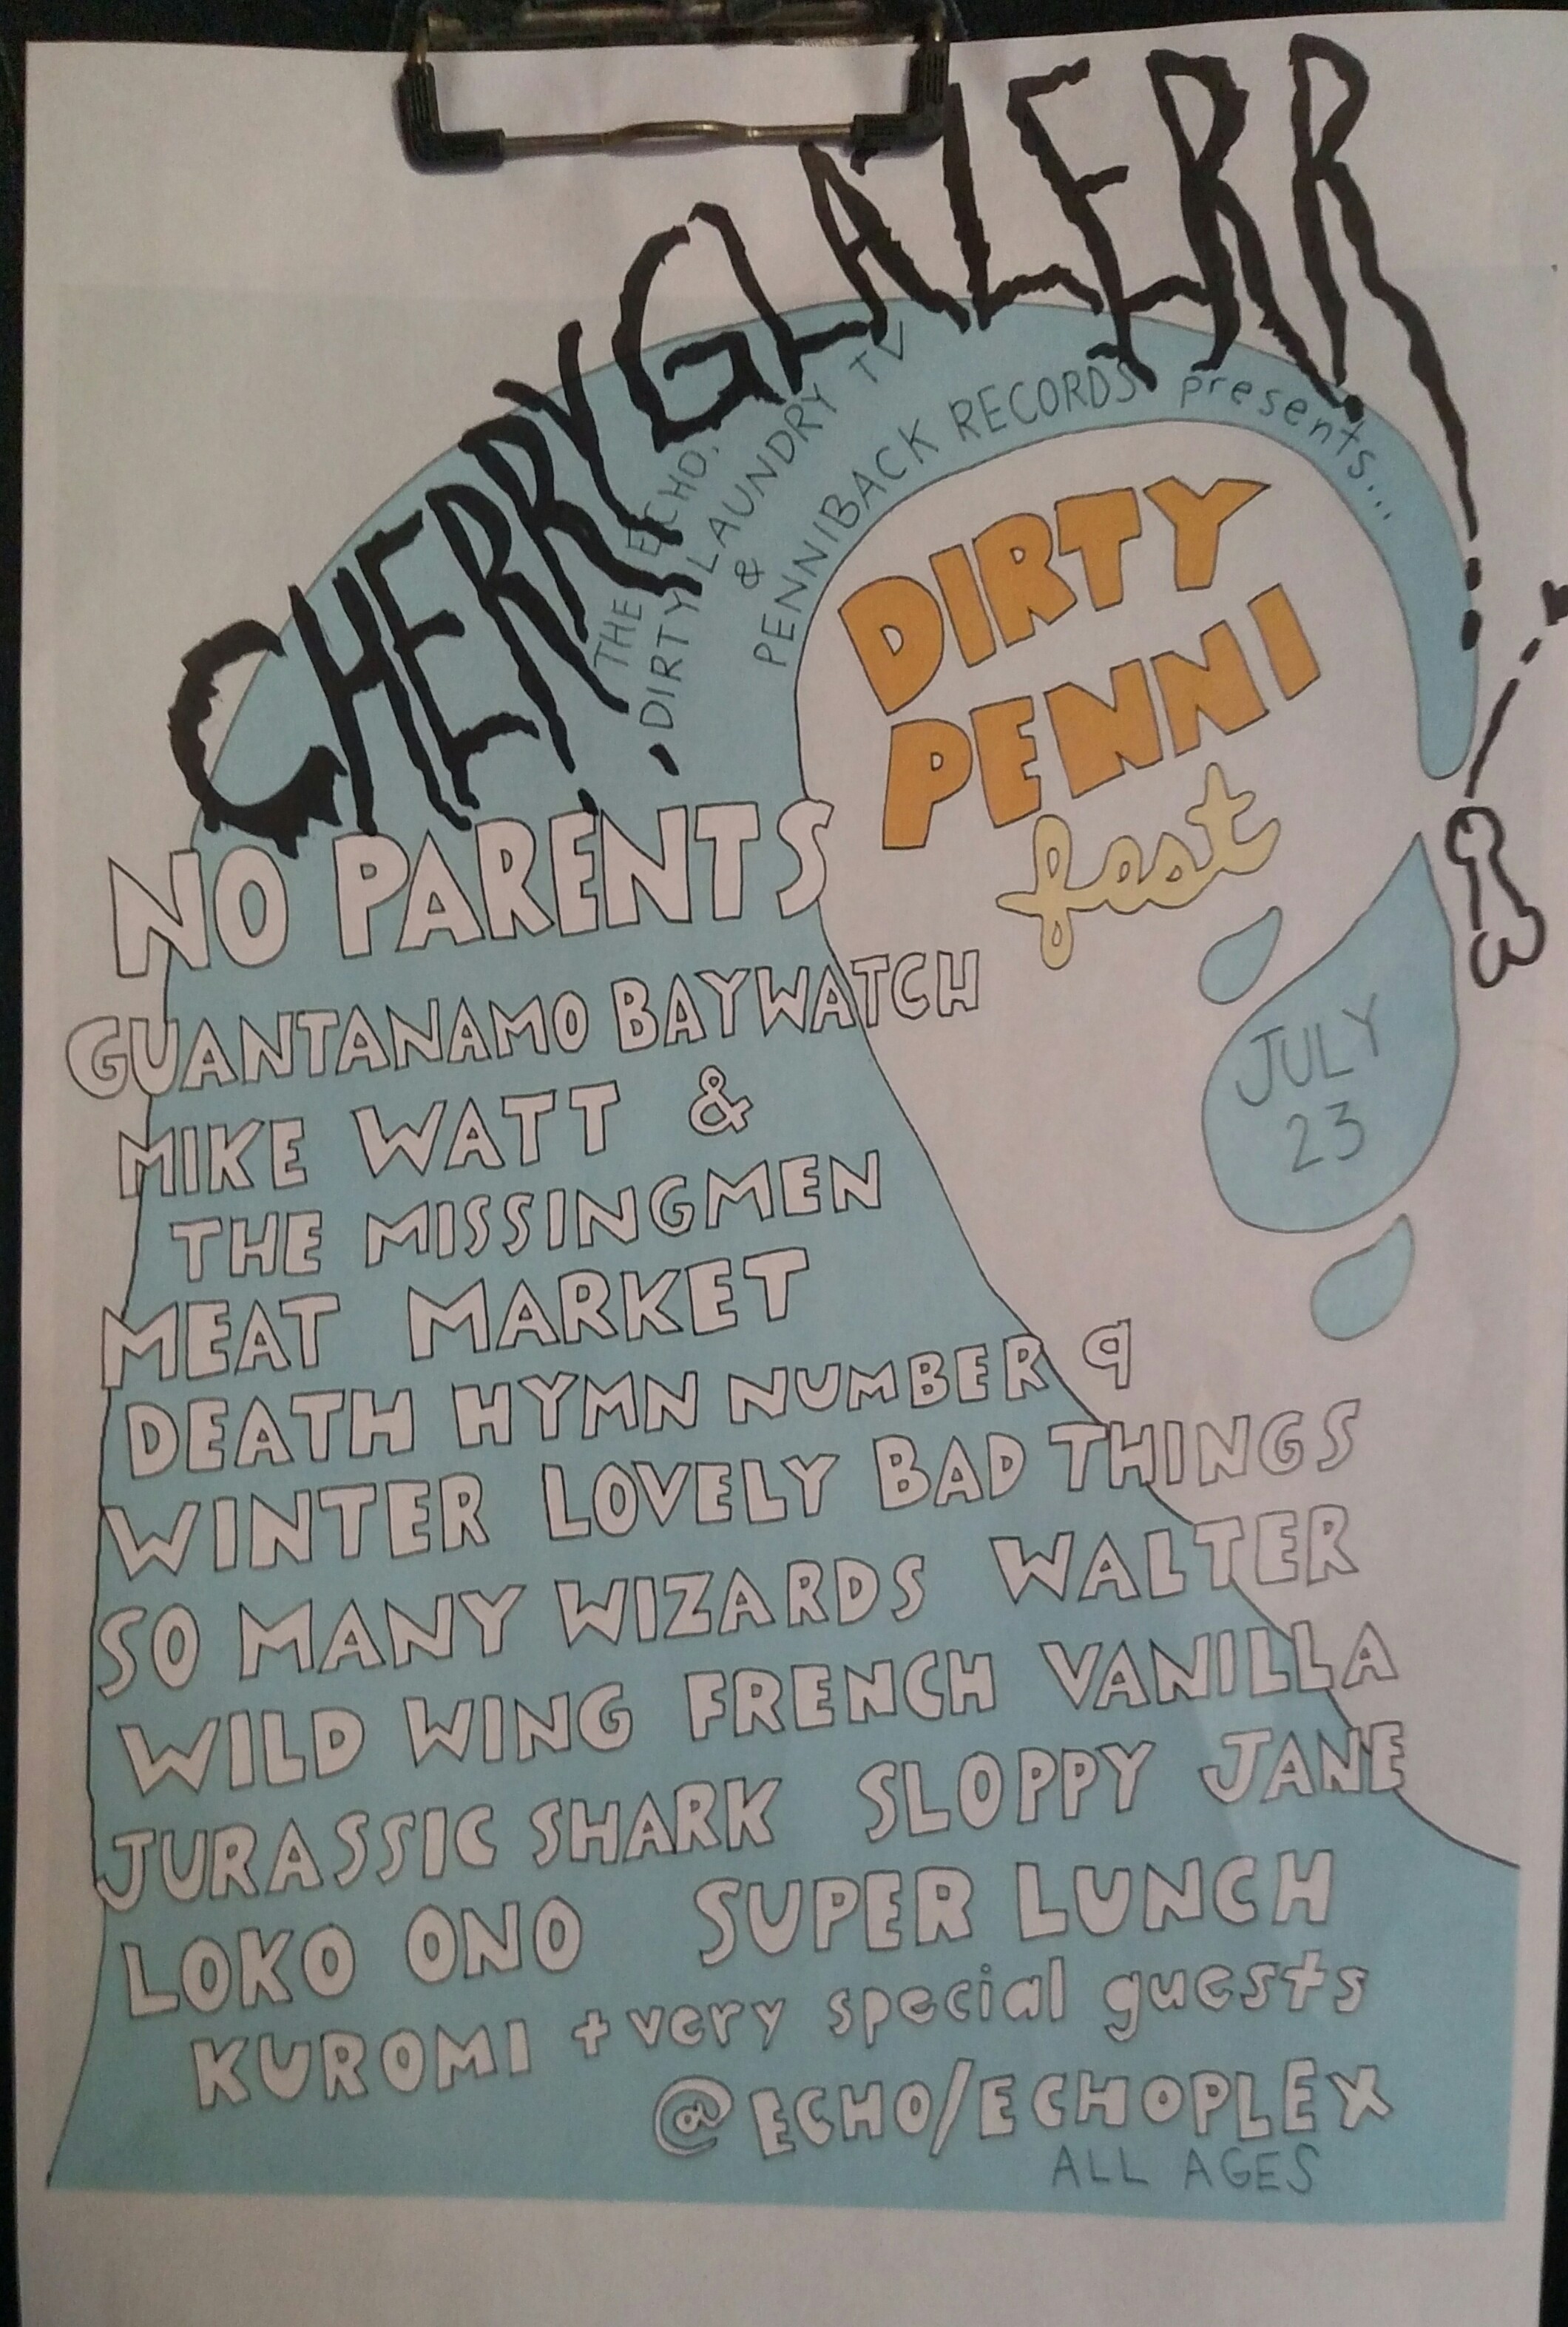 CHERRY GLAZERR
THE ECHO,
DIRTY LAUNDRY TV
&
PENNIBACK RECORDS presents...
DIRTY
PENNI
fest
JULY
23
NO PARENTS
GUANTANAMO BAYWATCH
MIKE WATT &
THE MISSINGMEN
MEAT MARKET
DEATH HYMN NUMBER 9
WINTER LOVELY BAD THINGS
SO MANY WIZARDS WALTER
WILD WING FRENCH VANILLA
JURASSIC SHARK SLOPPY JANE
LOKO ONO SUPER LUNCH
KUROMI + very special guests
@ECHO/ECHOPLEX
ALL AGES